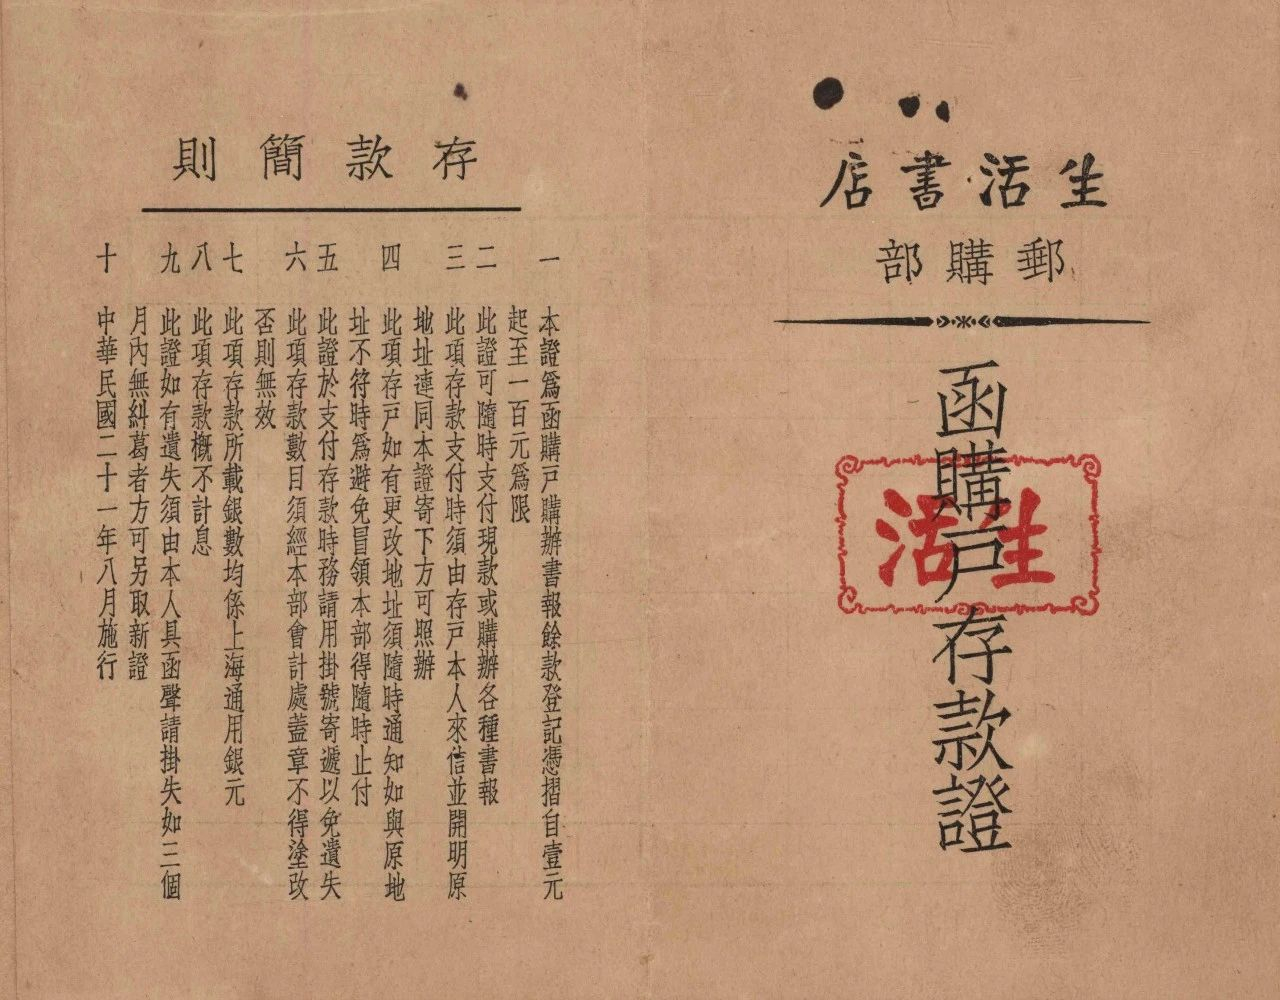 生活書店
郵購部
函購戶存款證
生活
存款簡則
一 本證爲函購戶購辦書報餘款登記憑摺自壹元
起至一百元爲限
二 此證可隨時支付現款或購辦各種書報
三 此項存款支付時須由存戶本人來信並開明原
地址連同本證寄下方可照辦
四 此項存戶如有更改地址須隨時通知如與原地
址不符時爲避免冒領本部得隨時止付
五 此證於支付存款時務請用掛號寄遞以免遺失
六 此項存款數目須經本部會計處蓋章不得塗改
否則無效
七 此項存款所載銀數均係上海通用銀元
八 此項存款概不計息
九 此證如有遺失須由本人具函聲請掛失如三個
月內無糾葛者方可另取新證
十 中華民國二十一年八月施行